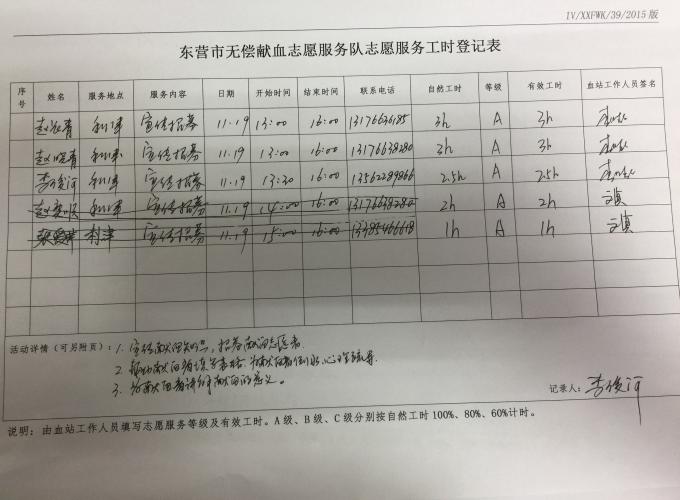 IV/XXFWK/39/2015 版
东营市无偿献血志愿服务队志愿服务工时登记表
序号 姓名 服务地点 服务内容 日期 开始时间 结束时间 联系电话 自然工时 等级 有效工时 血站工作人员签名
利津 宣传招募 11.19 13:00 16:00 13176636185 3h A 3h
赵晓青 利津 宣传招募 11.19 13:00 16:00 13176638280 3h A 3h
李俊河 利津 宣传招募 11.19 13:30 16:00 13562289866 2.5h A 2.5h
利津 宣传招募 11.19 14:00 16:00 13176638280 2h A 2h
利津 宣传招募 11.19 15:00 16:00 13385466618 1h A 1h
活动详情（可另附页）： 1. 宣传献血知识，招募献血志愿者.
2. 帮助献血者填写表格
3. 献血的意义。
记录人： 李俊河
说明：由血站工作人员填写志愿服务等级及有效工时。A 级、B 级、C 级分别按自然工时 100%、80%、60%计时。